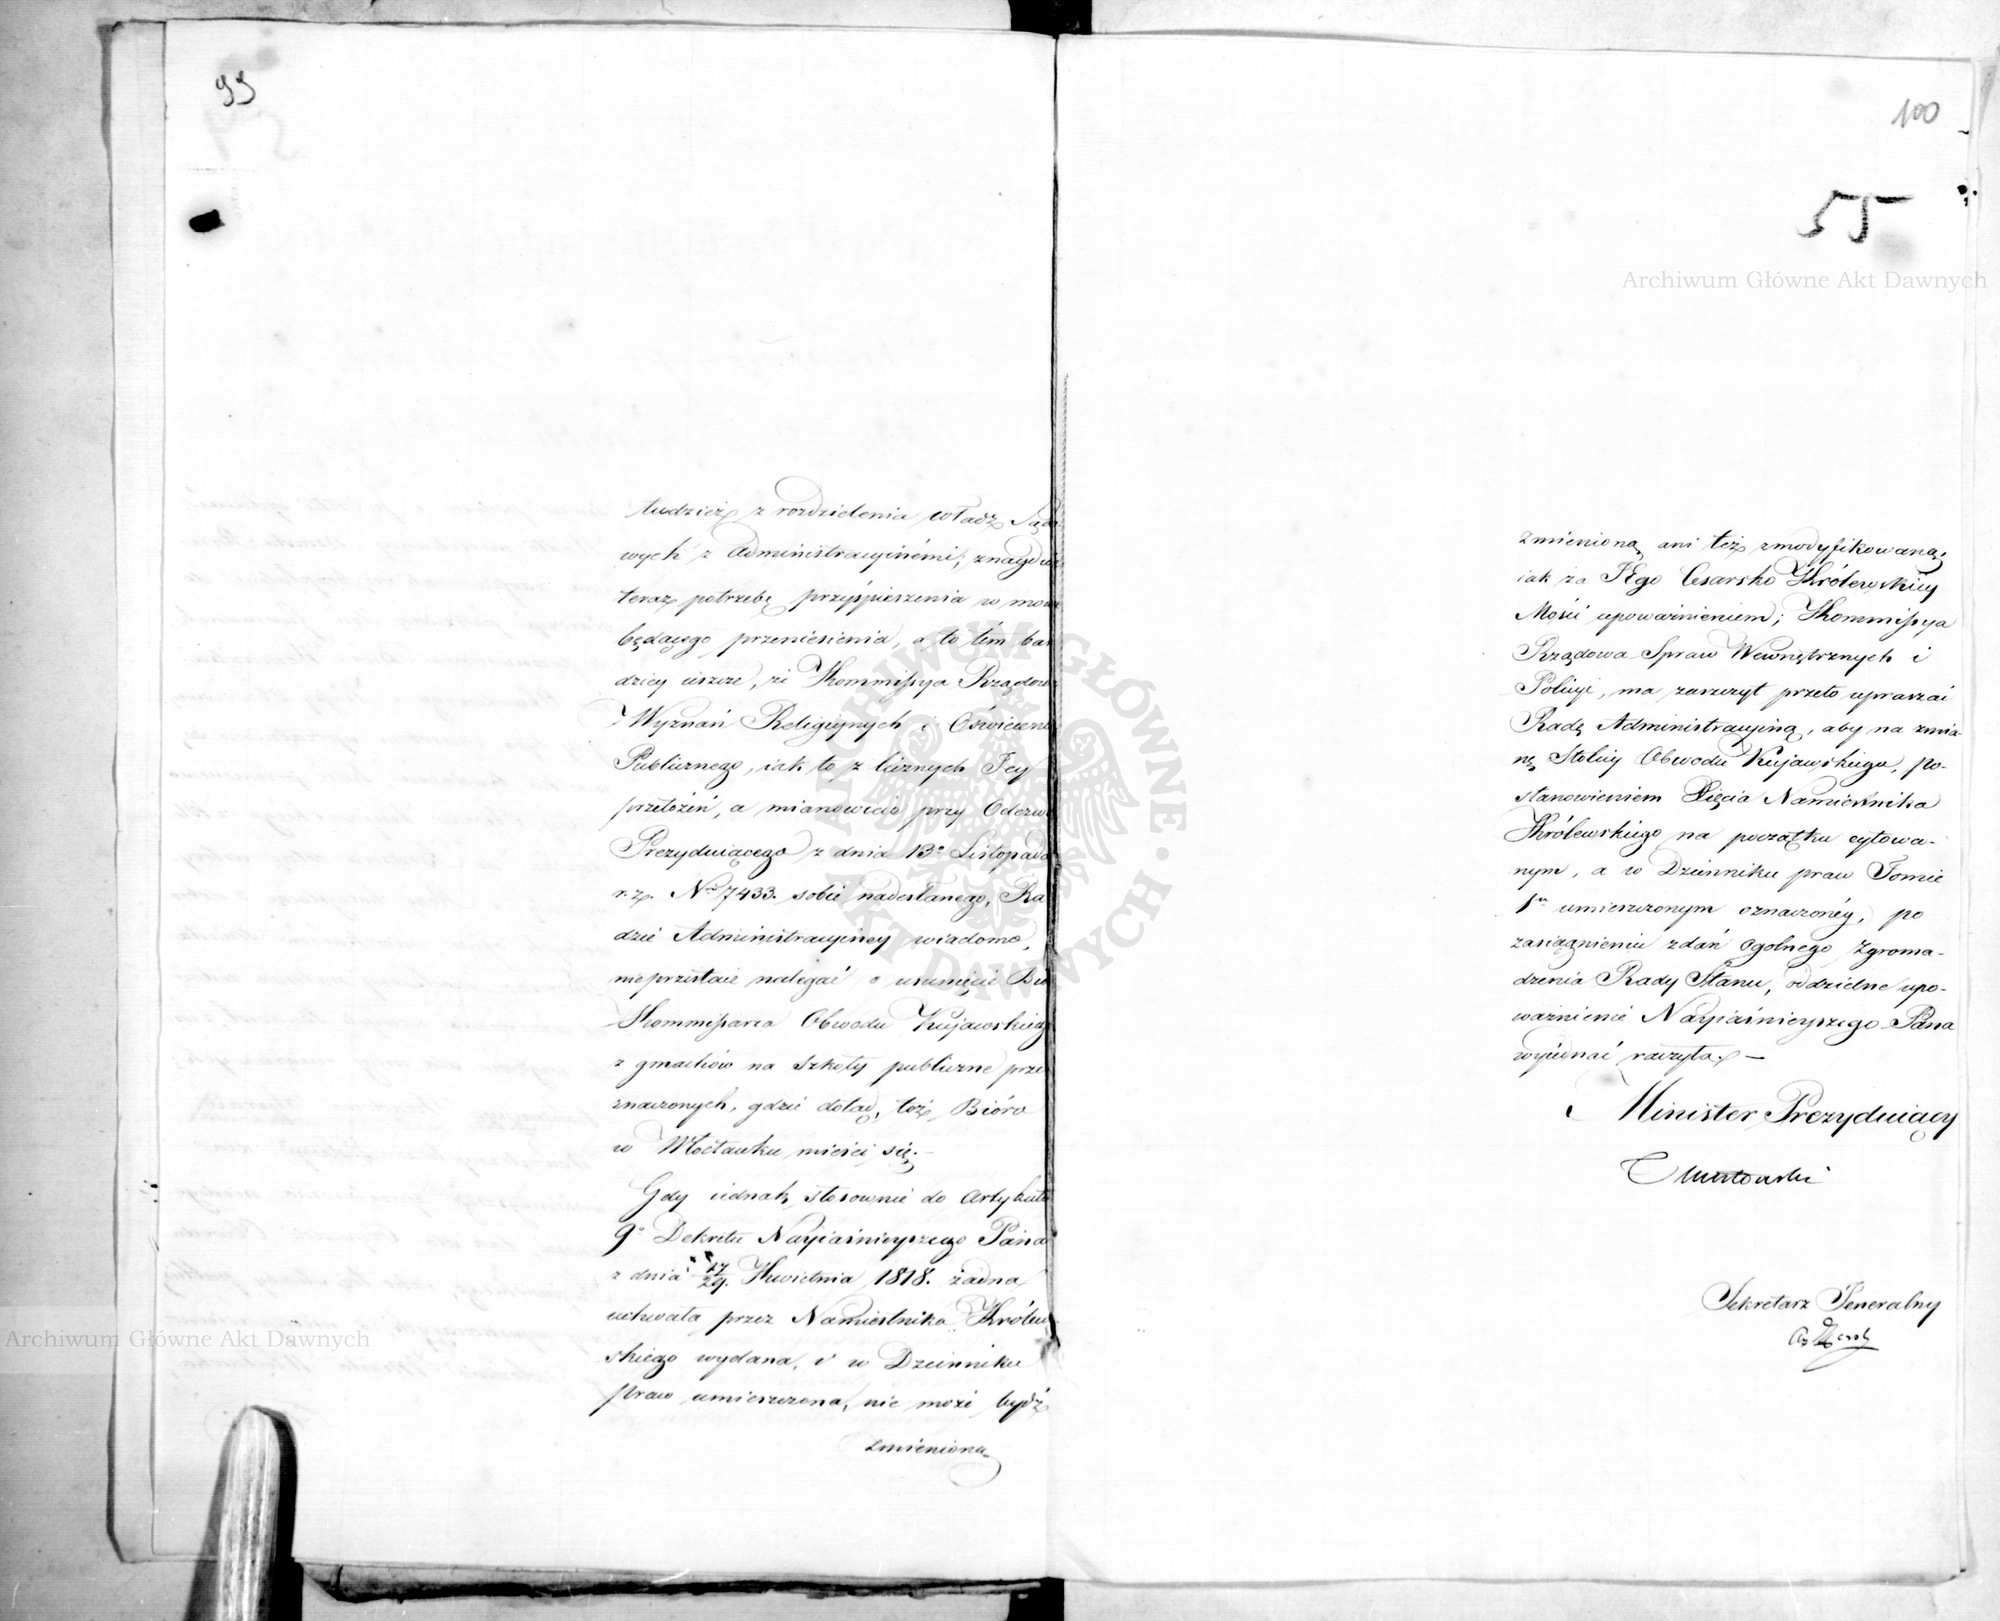 99
tudzież z rozdzielenia władz Sądo
wych z Administracyinémi, znayduie
teraz potrzebę przyśpieszenia w mowie
będącego przeniesienia, a to tém bar
dziey ieszcze, że Kommissya Rządowa
Wyznań Religiynych i Oświecenia
Publicznego, iak to z licznych Jey
przełożeń, a mianowicie przy Odezwie
Prezyduiącego z dnia 13º Listopada
r. z. Nro 7433. sobie nadesłanego, Ra
dzie Administracyiney wiadomo,
nieprzestaie nalegać o usunięcie Biu
Kommissarza Obwodu Kujawskiego
z gmachów na Szkoły publiczne prze
znaczonych, gdzie dotąd, toż Bióro
w Włocławku mieści się.—
Gdy iednak, stosownie do Artykułu
9º Dekretu Nayiaśnieyszego Pana
z dnia 17/29. Kwietnia 1818. żadna
uchwała przez Namiestnika Królew
skiego wydana, i w Dzienniku
praw umieszczona, nie może bydź
zmieniona
100
55
zmienioną ani też zmodyfikowaną,
iak za JEgo Cesarsko Królewskiey
Mości upoważnieniem; Kommissya
Rządowa Spraw Wewnętrznych i
Policyi, ma zaszczyt przeto upraszać
Radę Administracyiną, aby na zmia
nę Stolicy Obwodu Kujawskiego, po-
stanowieniem Xięcia Namiestnika
Królewskiego na początku cytowa-
nym, a w Dzienniku praw Tomie
1m umieszczonym oznaczonéy, po
zasiągnieniu zdań Ogolnego Zgroma-
dzenia Rady Stanu, oddzielne upo-
ważnienie Nayiaśnieyszego Pana
wyiednać raczyła.—
Minister Prezyduiący
Sekretarz Jeneralny
Archiwum Główne Akt Dawnych
Archiwum Główne Akt Dawnych
ARCHIWUM GŁÓWNE AKT DAWNYCH